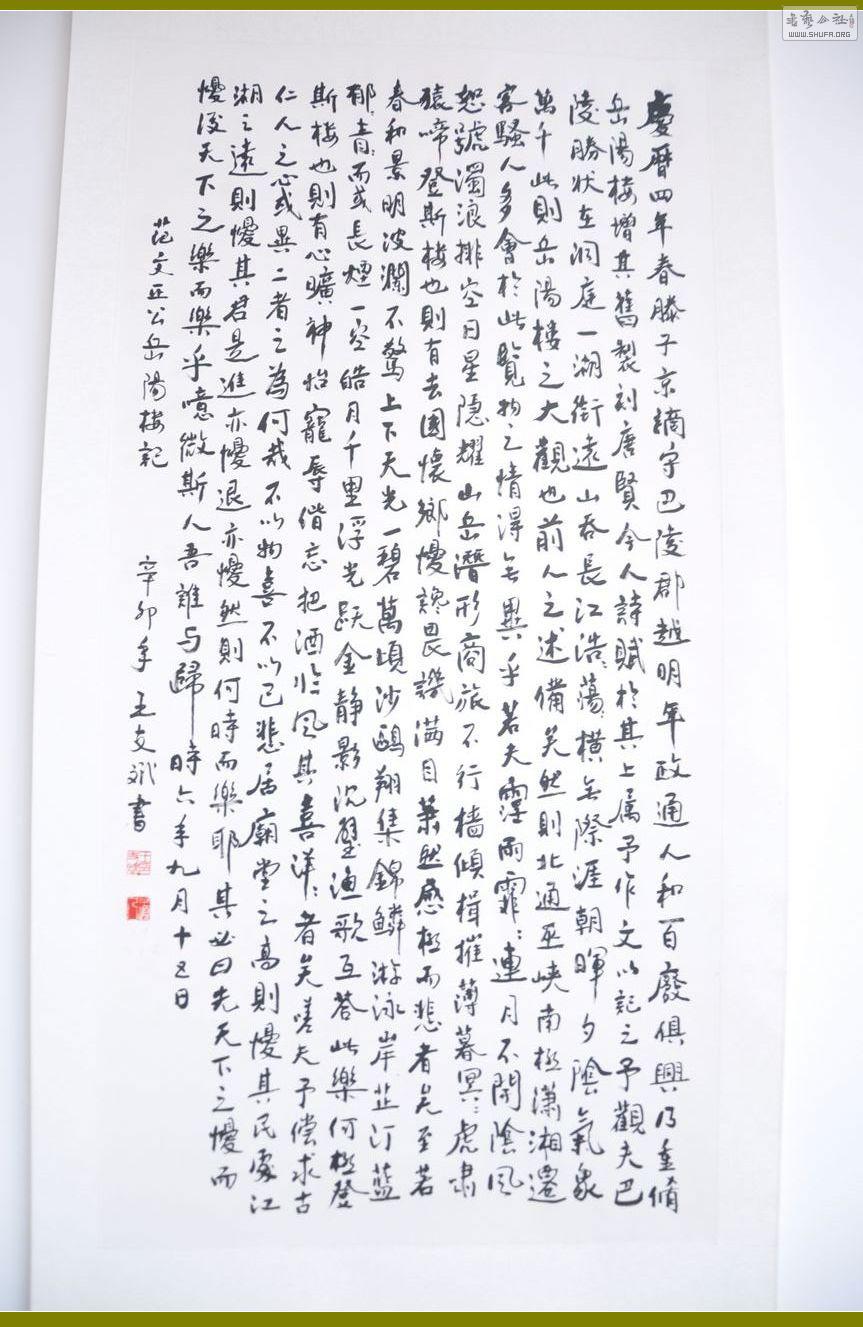 慶曆四年春滕子京謫守巴陵郡越明年政通人和百廢俱興乃重脩
岳陽樓增其舊製刻唐賢今人詩賦於其上属予作文以記之予觀夫巴
陵勝狀在洞庭一湖銜遠山吞長江浩:蕩:橫無際涯朝暉夕陰氣象
萬千此則岳陽樓之大觀也前人之述備矣然則北通巫峽南極瀟湘遷
客騷人多會於此覽物之情得無異乎若夫霪雨霏:連月不開陰風
怒號濁浪排空日星隱耀山岳潛形商旅不行檣傾楫摧薄暮冥:虎嘯
猿啼登斯樓也則有去國懷鄉懮讒畏譏满目蕭然感極而悲者矣至若
春和景明波瀾不驚上下天光一碧萬頃沙鷗翔集錦鱗游泳岸芷汀蘭
郁:青:而或長煙一空皓月千里浮光跃金静影沉璧漁歌互答此樂何極登
斯樓也則有心曠神怡寵辱偕忘把酒臨風其喜洋:者矣嗟夫予偿求古
仁人之心或異二者之為何哉不以物喜不以己悲居廟堂之高則懮其民處江
湖之遠則懮其君是進亦懮退亦懮然則何時而樂耶其必曰先天下之懮而
懮後天下之樂而樂乎噫微斯人吾誰与歸時六年九月十五日
范文正公岳陽樓記
辛卯年王文斌書
书艺公社
WWW.SHUFA.ORG